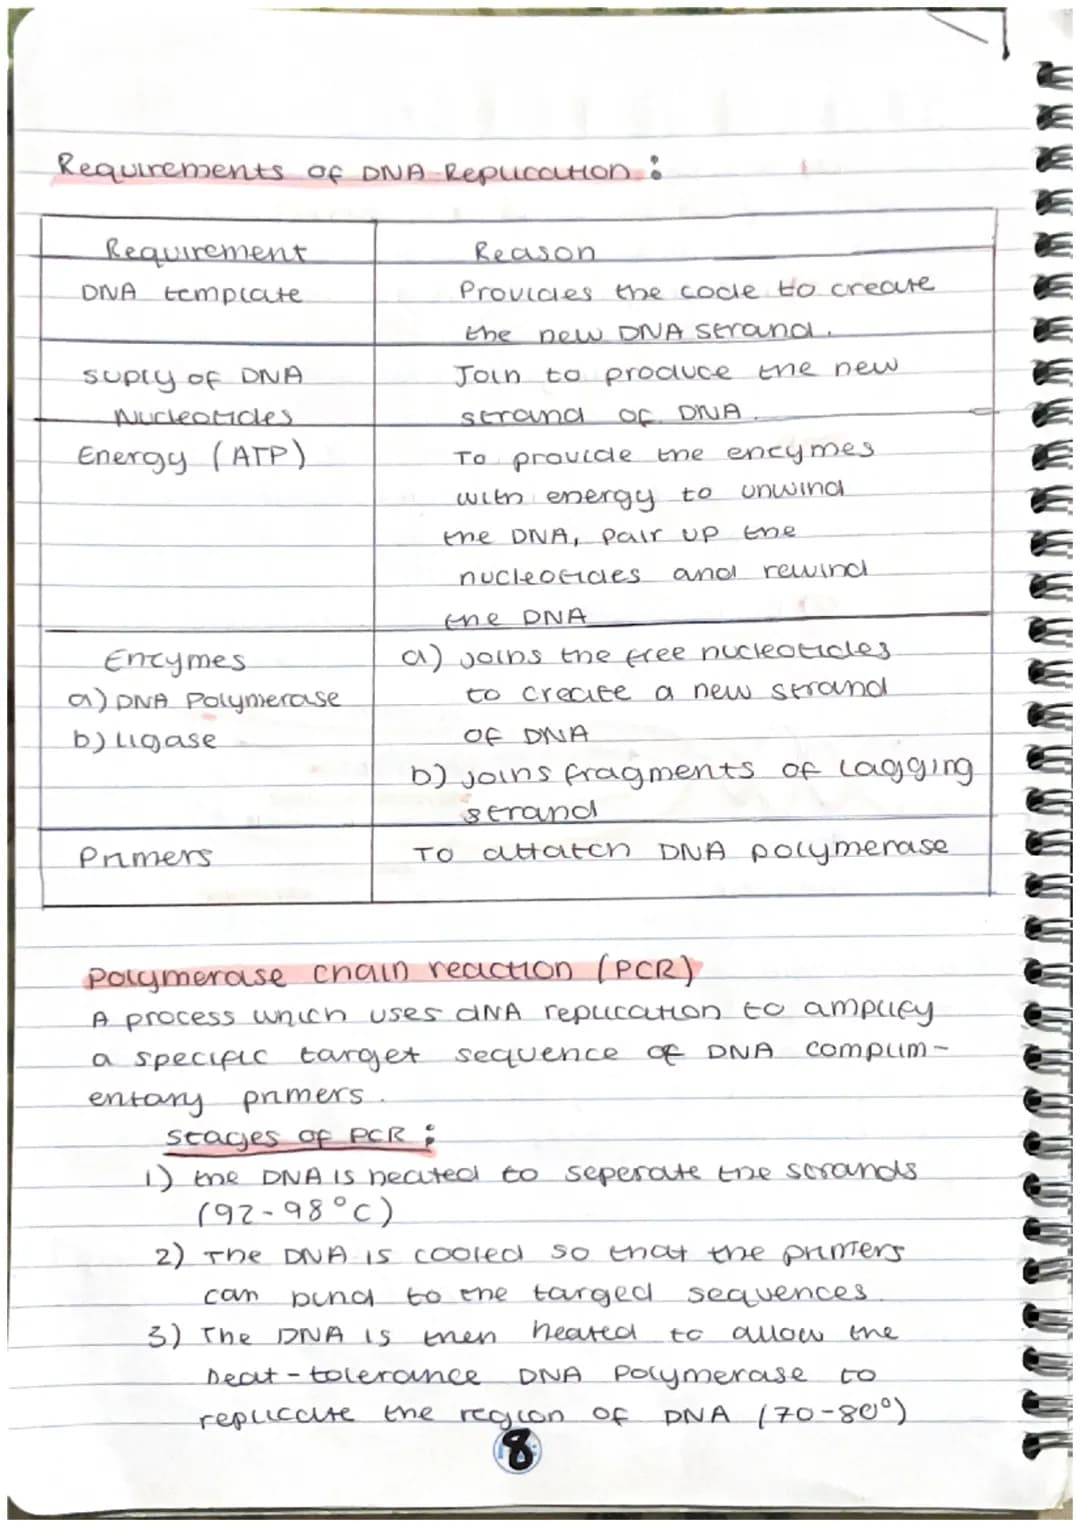 Requirements of DNA Replication :
Requirement Reason
DNA template Provides the code to create
the new DNA strand.
suply of DNA Join to produce the new
Nucleotides strand of DNA.
Energy (ATP) To provide the enzymes
with energy to unwind
the DNA, pair up the
nucleotides and rewind
the DNA
Enzymes a) joins the free nucleotides
a) DNA Polymerase to create a new strand
b) ligase of DNA
b) joins fragments of lagging
strand
Primers To attatch DNA polymerase
Polymerase chain reaction (PCR)
A process which uses DNA replication to amplify
a specific target sequence of DNA complim-
entary primers.
Stages of PCR :
1) the DNA is heated to seperate the strands
(92-98°C)
2) The DNA is cooled so that the primers
can bind to the targed sequences.
3) The DNA is then heated to allow the
heat-tolerance DNA Polymerase to
replicate the region of DNA (70-80°)
8